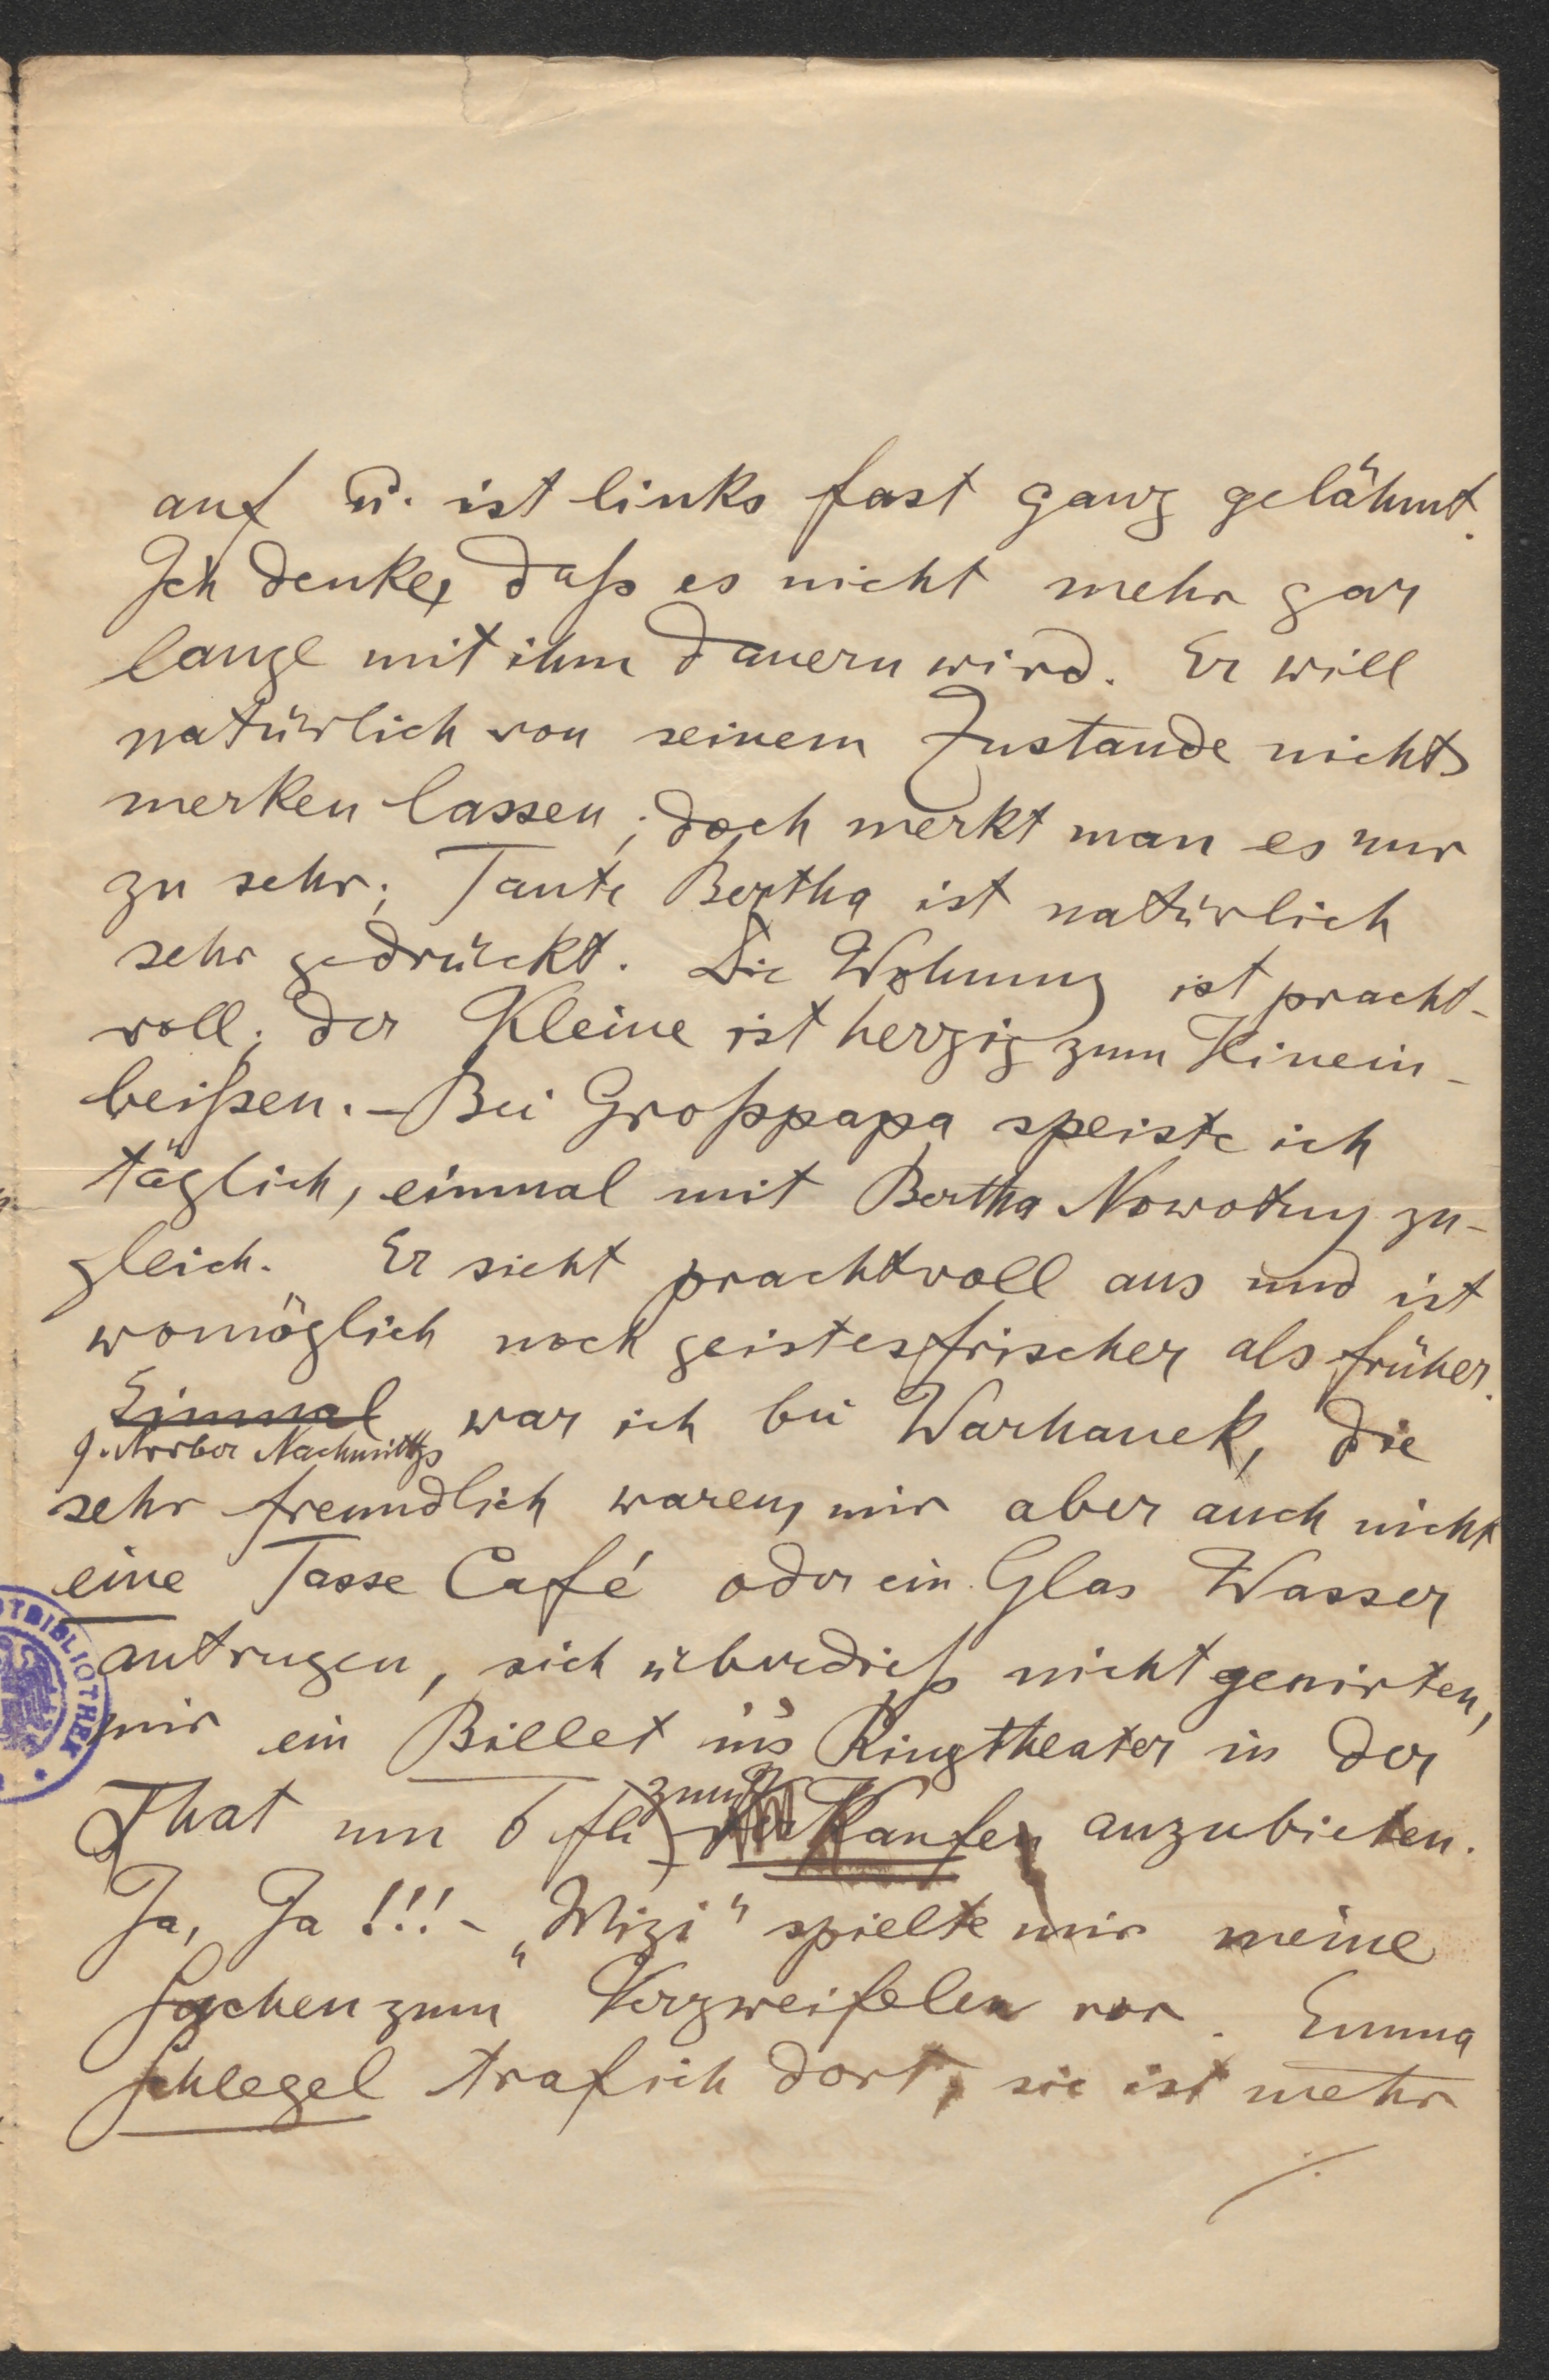 auf u. ist links fast ganz gelähmt.
Ich denke, daß es nicht mehr gar
lange mit ihm dauern wird. Er will
natürlich von seinem Zustande nichts
merken lassen; doch merkt man es nur
zu sehr; Tante Bertha ist natürlich
sehr gedrückt. Die Wohnung ist pracht-
voll; der Kleine ist herzig zum Hinein-
beißen. – Bei Großpapa speiste ich
täglich, einmal mit Bertha Nowotny zu-
gleich. Er sieht prachtvoll aus und ist
womöglich noch geistesfrischer als früher.
Einmal war ich bei Warhanek, die
9. Nachmittgs
sehr freundlich waren, mir aber auch nicht
eine Tasse Café oder ein Glas Wasser
antrugen, sich überdieß nicht genirten,
mir ein Billet in's Ringtheater in der
zum
That um 6 fl Kaufen anzubieten.
Ja, Ja!!! – „Mizi" spielte mir meine
Sachen zum Verzweifelen vor. Emma
Schlegel traf ich dort, sie ist mehr
./.
OTBIBLIOTHEK